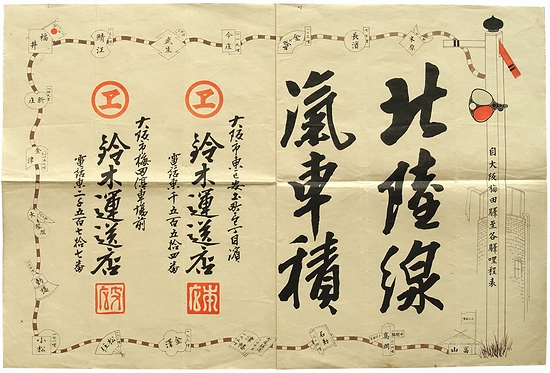 自大阪梅田驛至各驛哩程表
北陸線
氣車積
大阪市東区安土町 丁目濱
鈴木運送店
電話東千五百五拾四番
大阪市梅田停車場前
鈴木運送店
電話東 千五百七拾七番
米原
長濱
今庄
武生
鯖江
福井
新庄
金津
動橋
小松
松任
金澤
石動
高岡
富山